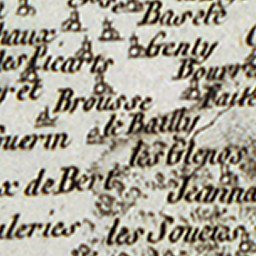 Baseté
haux
Genty
les Picarts
Bourré
Brousse
Faite
le Bailly
uerin
les Glenos
x de Bert
Jeanna
uleries
les Soucis